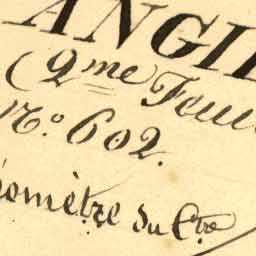 ANGI
(2me Feui
No. 602.
éomètre du C.tre